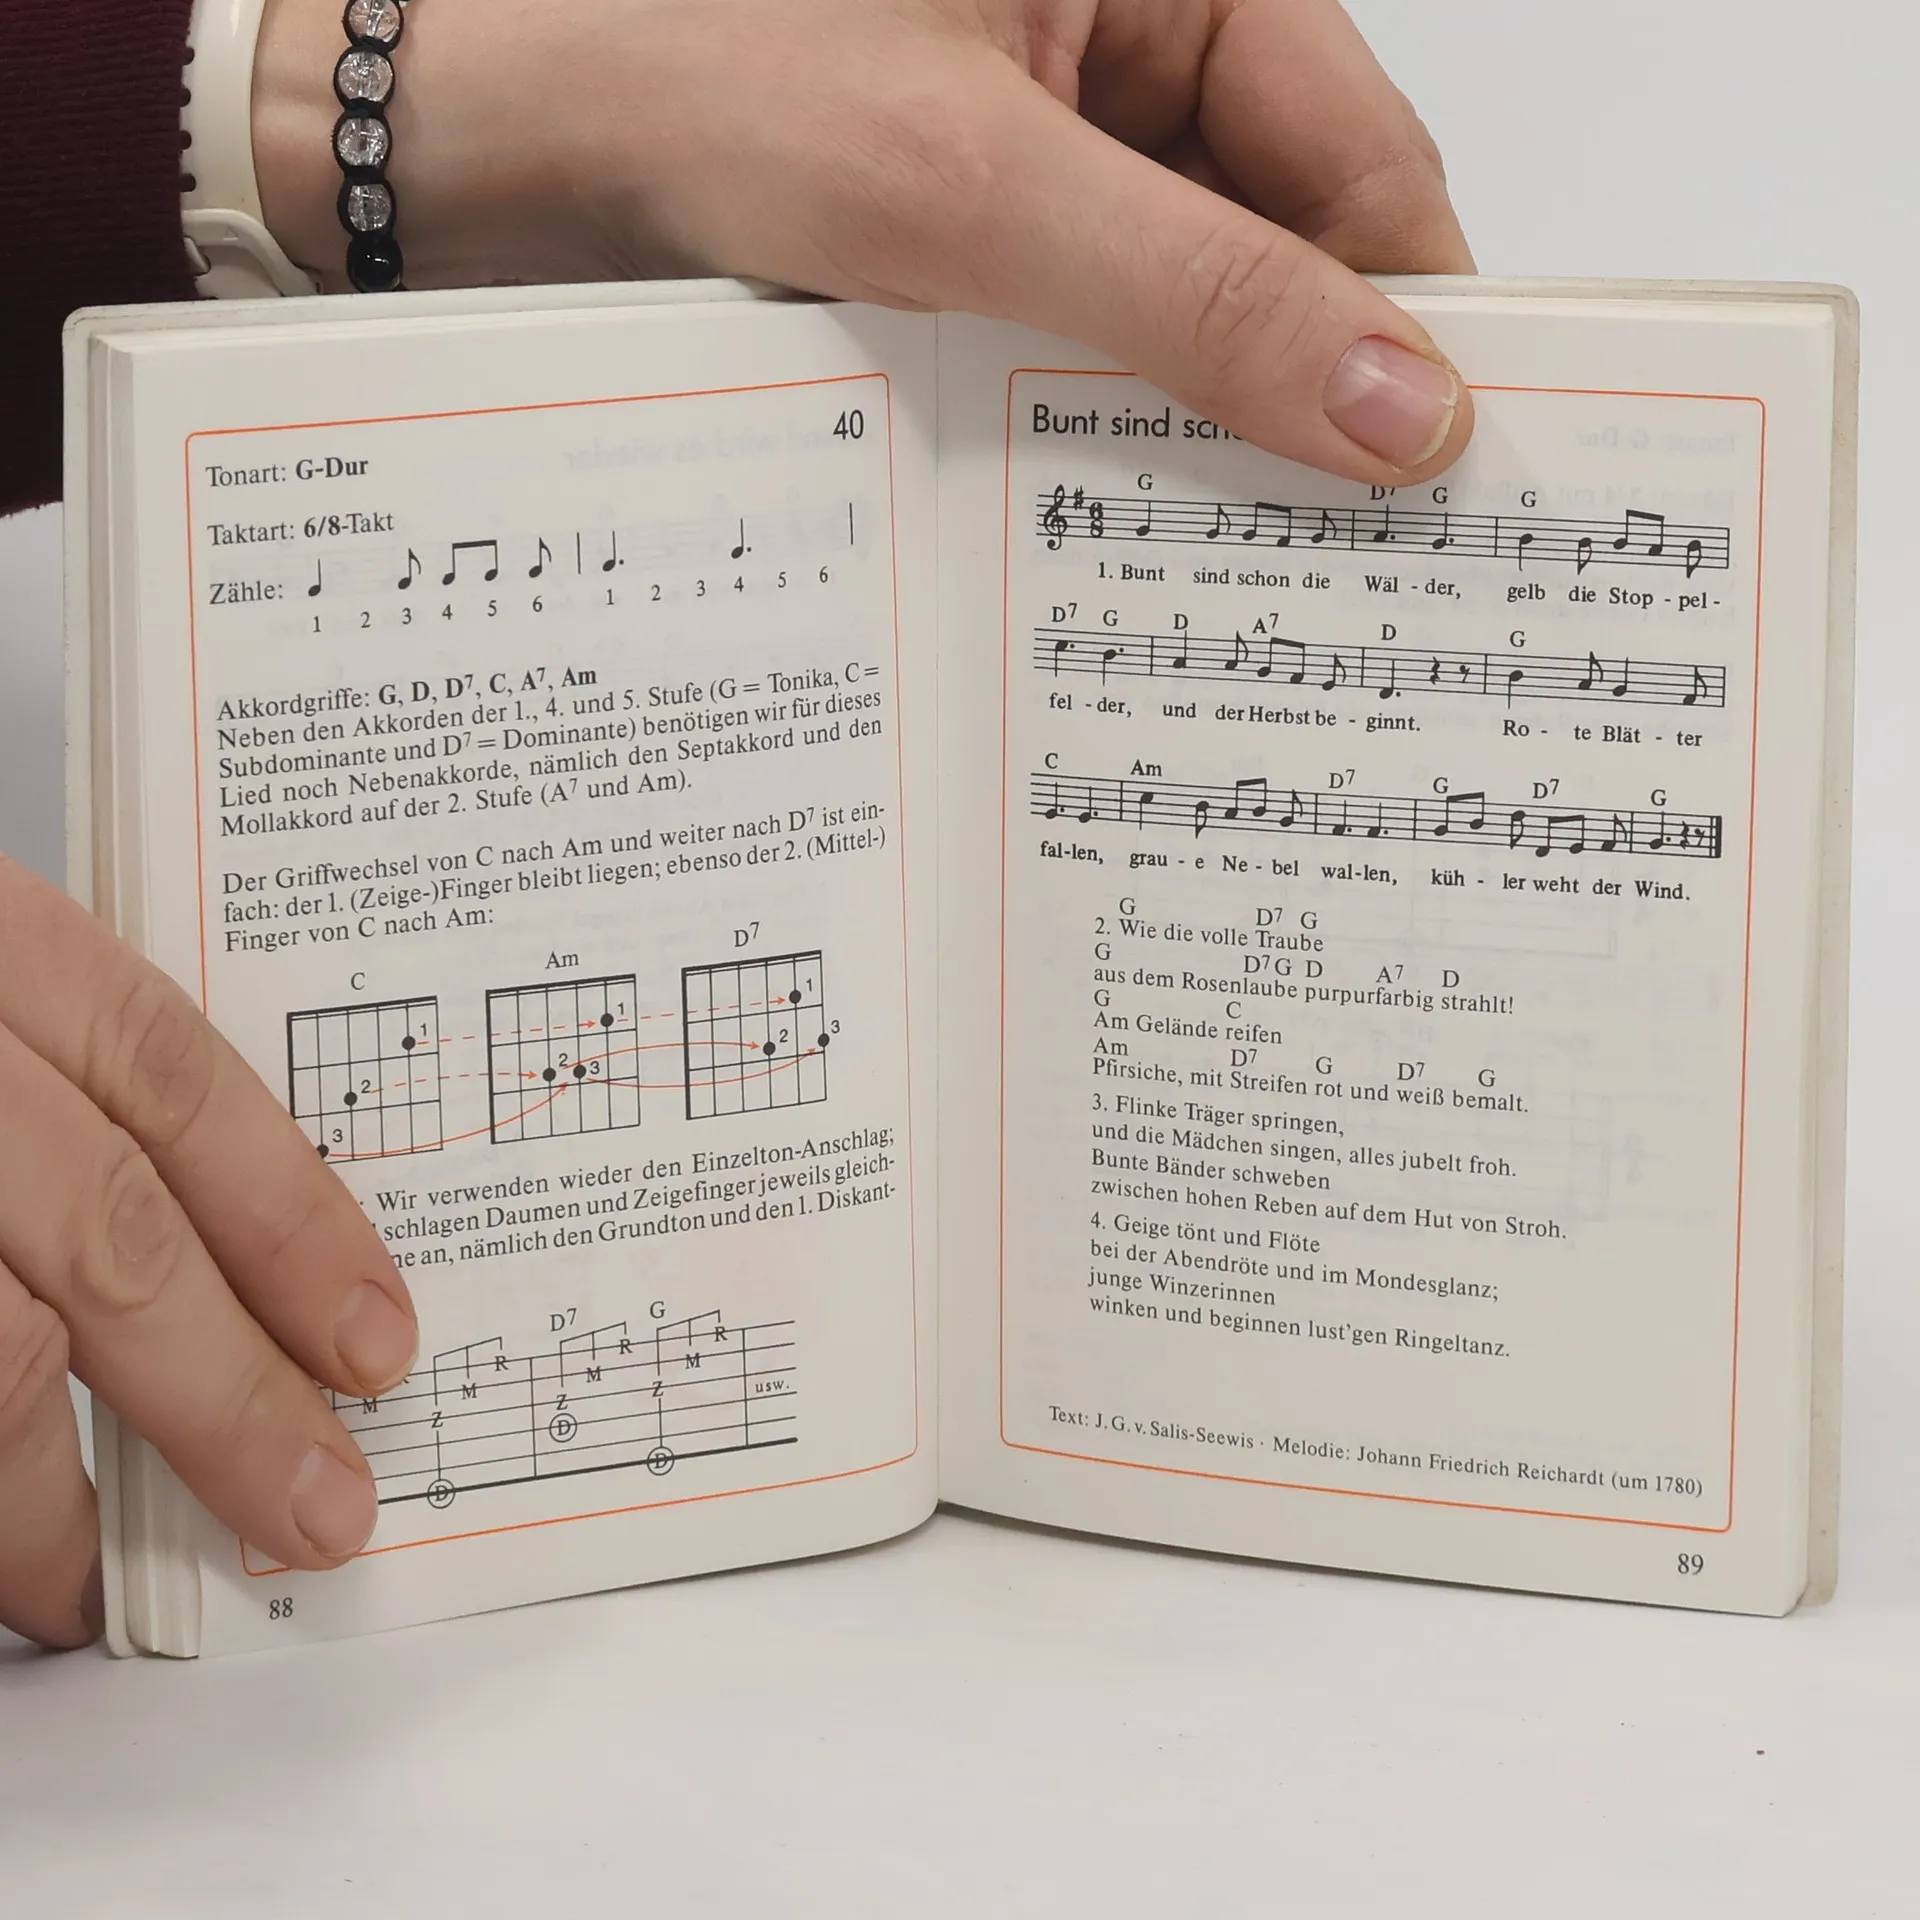 40
Tonart: G-Dur
Taktart: 6/8-Takt
Zähle:
1 2 3 4 5 6 1 2 3 4 5 6
Akkordgriffe: G, D, D7, C, A7, Am
Neben den Akkorden der 1., 4. und 5. Stufe (G = Tonika, C =
Subdominante und D7 = Dominante) benötigen wir für dieses
Lied noch Nebenakkorde, nämlich den Septakkord und den
Mollakkord auf der 2. Stufe (A7 und Am).
Der Griffwechsel von C nach Am und weiter nach D7 ist ein-
fach: der 1. (Zeige-)Finger bleibt liegen; ebenso der 2. (Mittel-)
Finger von C nach Am:
C Am D7
1 1 1
2 2 3 2 3
3
: Wir verwenden wieder den Einzelton-Anschlag;
schlagen Daumen und Zeigefinger jeweils gleich-
an, nämlich den Grundton und den 1. Diskant-
D7 G
R R R
M M M M
Z Z Z usw.
D D D
88
Bunt sind
G D7 G G
6
8
1. Bunt sind schon die Wäl - der, gelb die Stop - pel -
D7 G D A7 D G
fel - der, und der Herbst be - ginnt. Ro - te Blät - ter
C Am D7 G D7 G
fal-len, grau - e Ne - bel wal-len, küh - ler weht der Wind.
G D7 G
2. Wie die volle Traube
G D7 G D A7 D
aus dem Rosenlaube purpurfarbig strahlt!
G C
Am Gelände reifen
Am D7 G D7 G
Pfirsiche, mit Streifen rot und weiß bemalt.
3. Flinke Träger springen,
und die Mädchen singen, alles jubelt froh.
Bunte Bänder schweben
zwischen hohen Reben auf dem Hut von Stroh.
4. Geige tönt und Flöte
bei der Abendröte und im Mondesglanz;
junge Winzerinnen
winken und beginnen lust'gen Ringeltanz.
Text: J. G. v. Salis-Seewis · Melodie: Johann Friedrich Reichardt (um 1780)
89